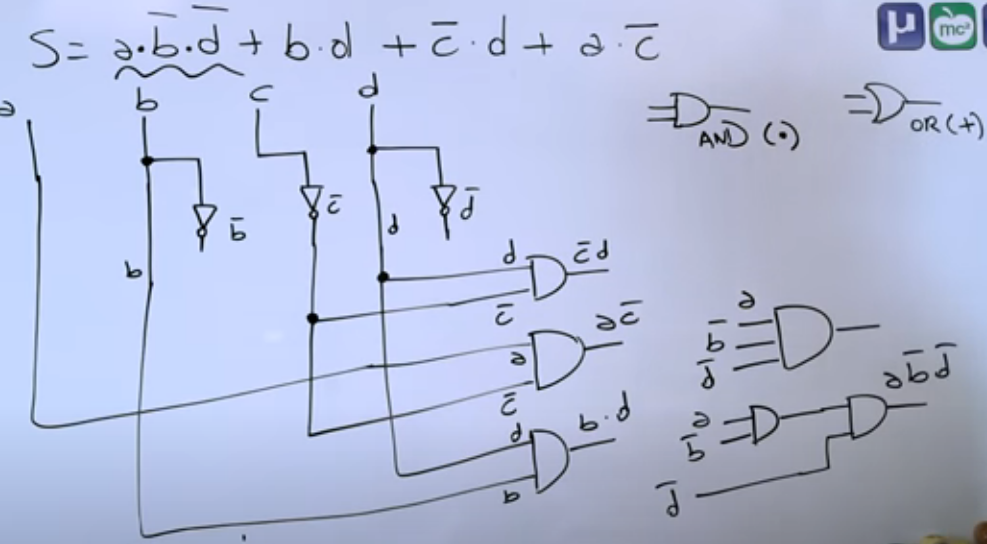 S = a·b̅·d̅ + b·d + c̅·d + a·c̅
µ
mc²
a b c d
AND (·)
OR (+)
b̅
c̅
d̅
d
b
d
c̅
c̅d
a
c̅
ac̅
d
b
b·d
a
b̅
d̅
a
b̅
d̅
ab̅d̅